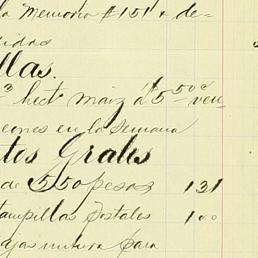 la Memoria #151 & de=
didas
llas.
3 hect maiz a $5.50c ven
eones en la semana
tos Grales
de 550 pesos 131
tampillas Postales 1 00
para